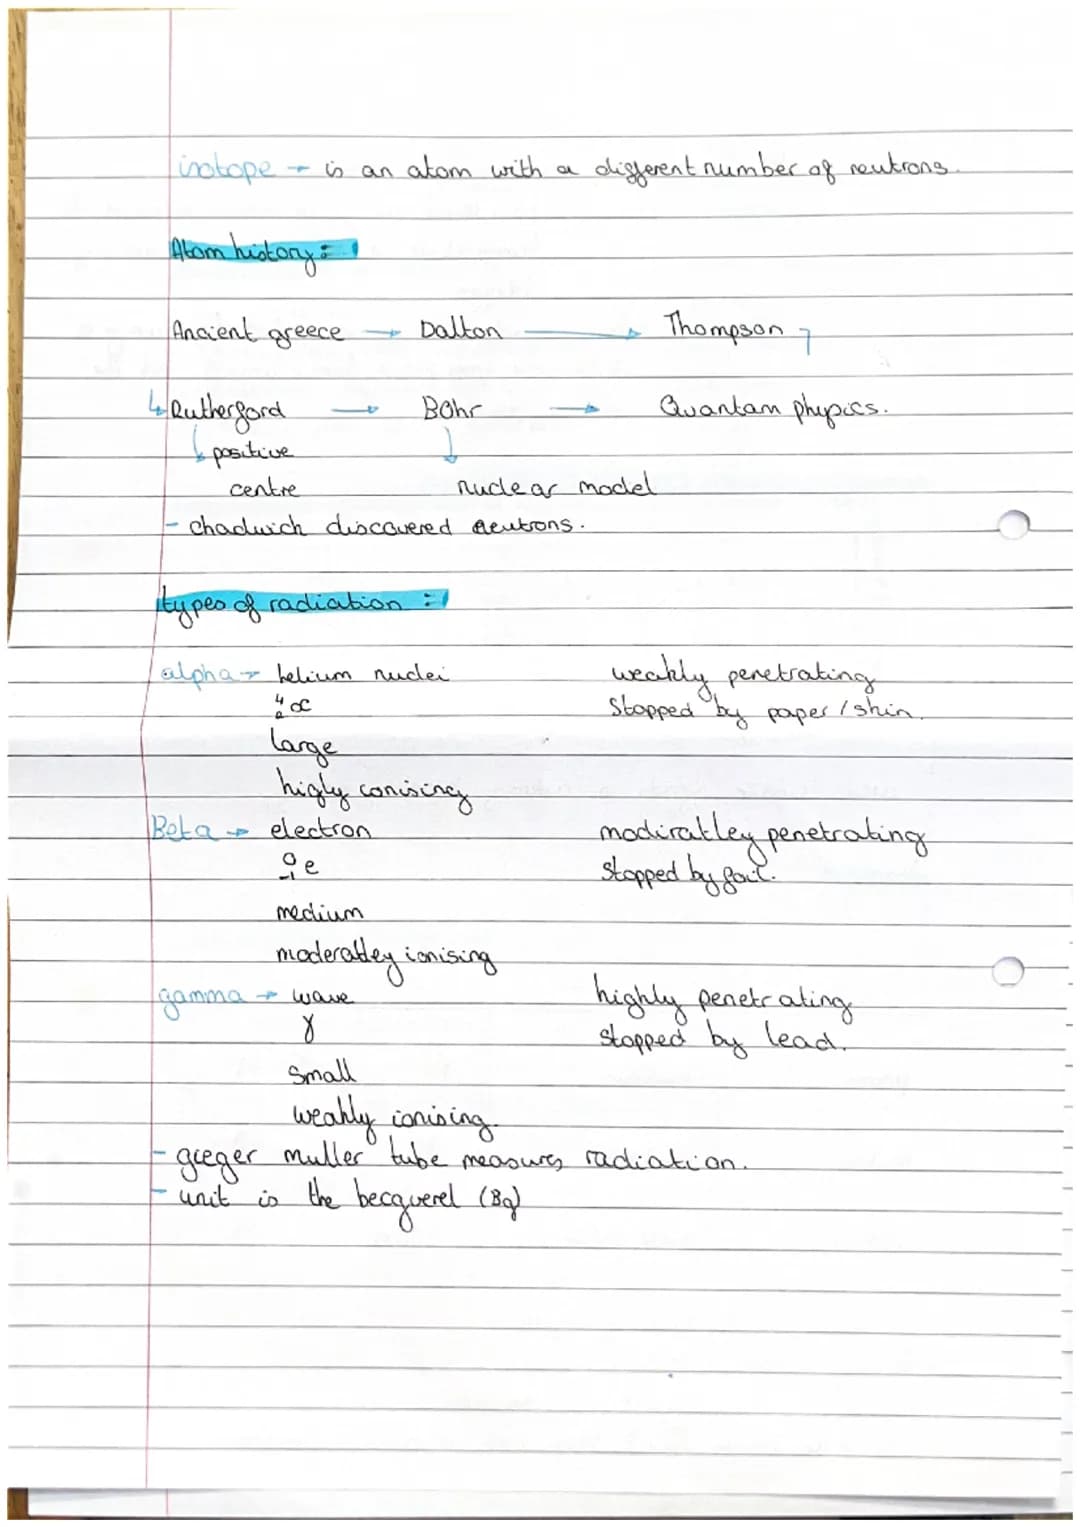 isotope → is an atom with a different number of neutrons.
Atom history:
Ancient greece → Dalton → Thompson
↳ Rutherford → Bohr → Quantam phypics.
↳ positive ↓
centre nuclear model
- chadwich discovered neutrons.
types of radiation:
alpha → helium nuclei weakly penetrating
⁴₂α Stopped by paper / skin.
large
higly ionising
Beta → electron modiratley penetrating
⁰₋₁e stopped by foil.
medium
moderatley ionising
gamma → wave highly penetrating
γ stopped by lead.
small
weakly ionising.
- gieger muller tube measures radiation.
- unit is the becquerel (Bq)